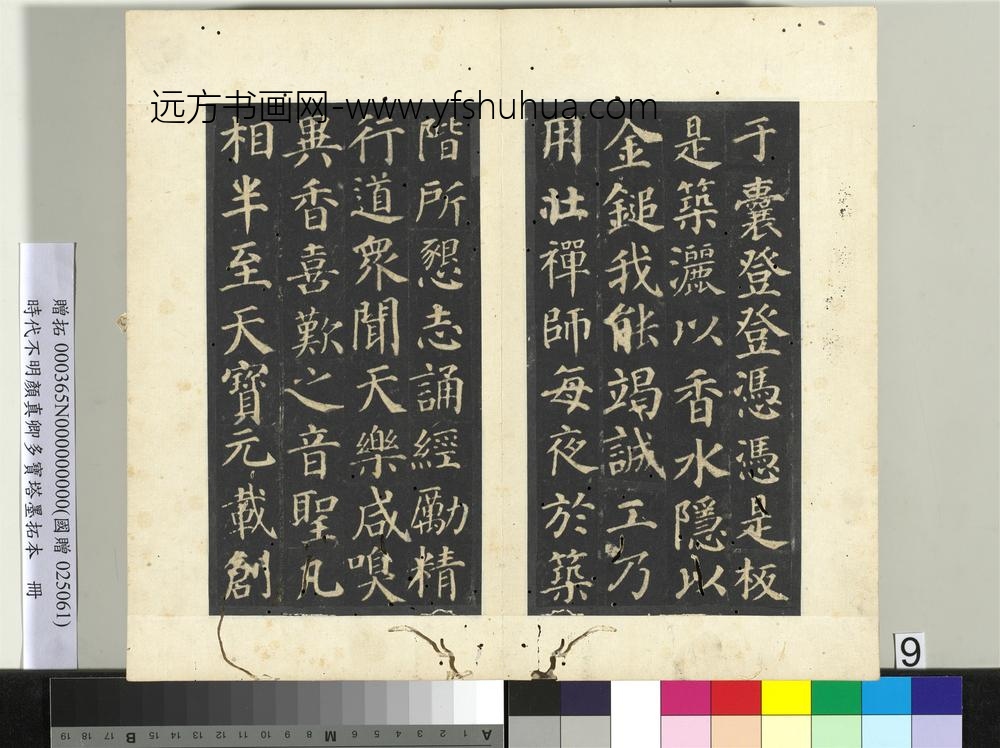 远方书画网-www.yfshuhua.com
于囊登登憑憑是板
是築灑以香水隱以
金鎚我能竭誠工乃
用壯禪師每夜於築
階所懇志誦經勵精
行道衆聞天樂咸嗅
異香喜歎之音聖凡
相半至天寶元載創
贈拓 000365N000000000(國贈 025061)
時代不明顏真卿多寶塔墨拓本 冊
9
A 1 2 3 4 5 6 7 8 M 9 10 11 12 13 14 15 B 16 17 18 19